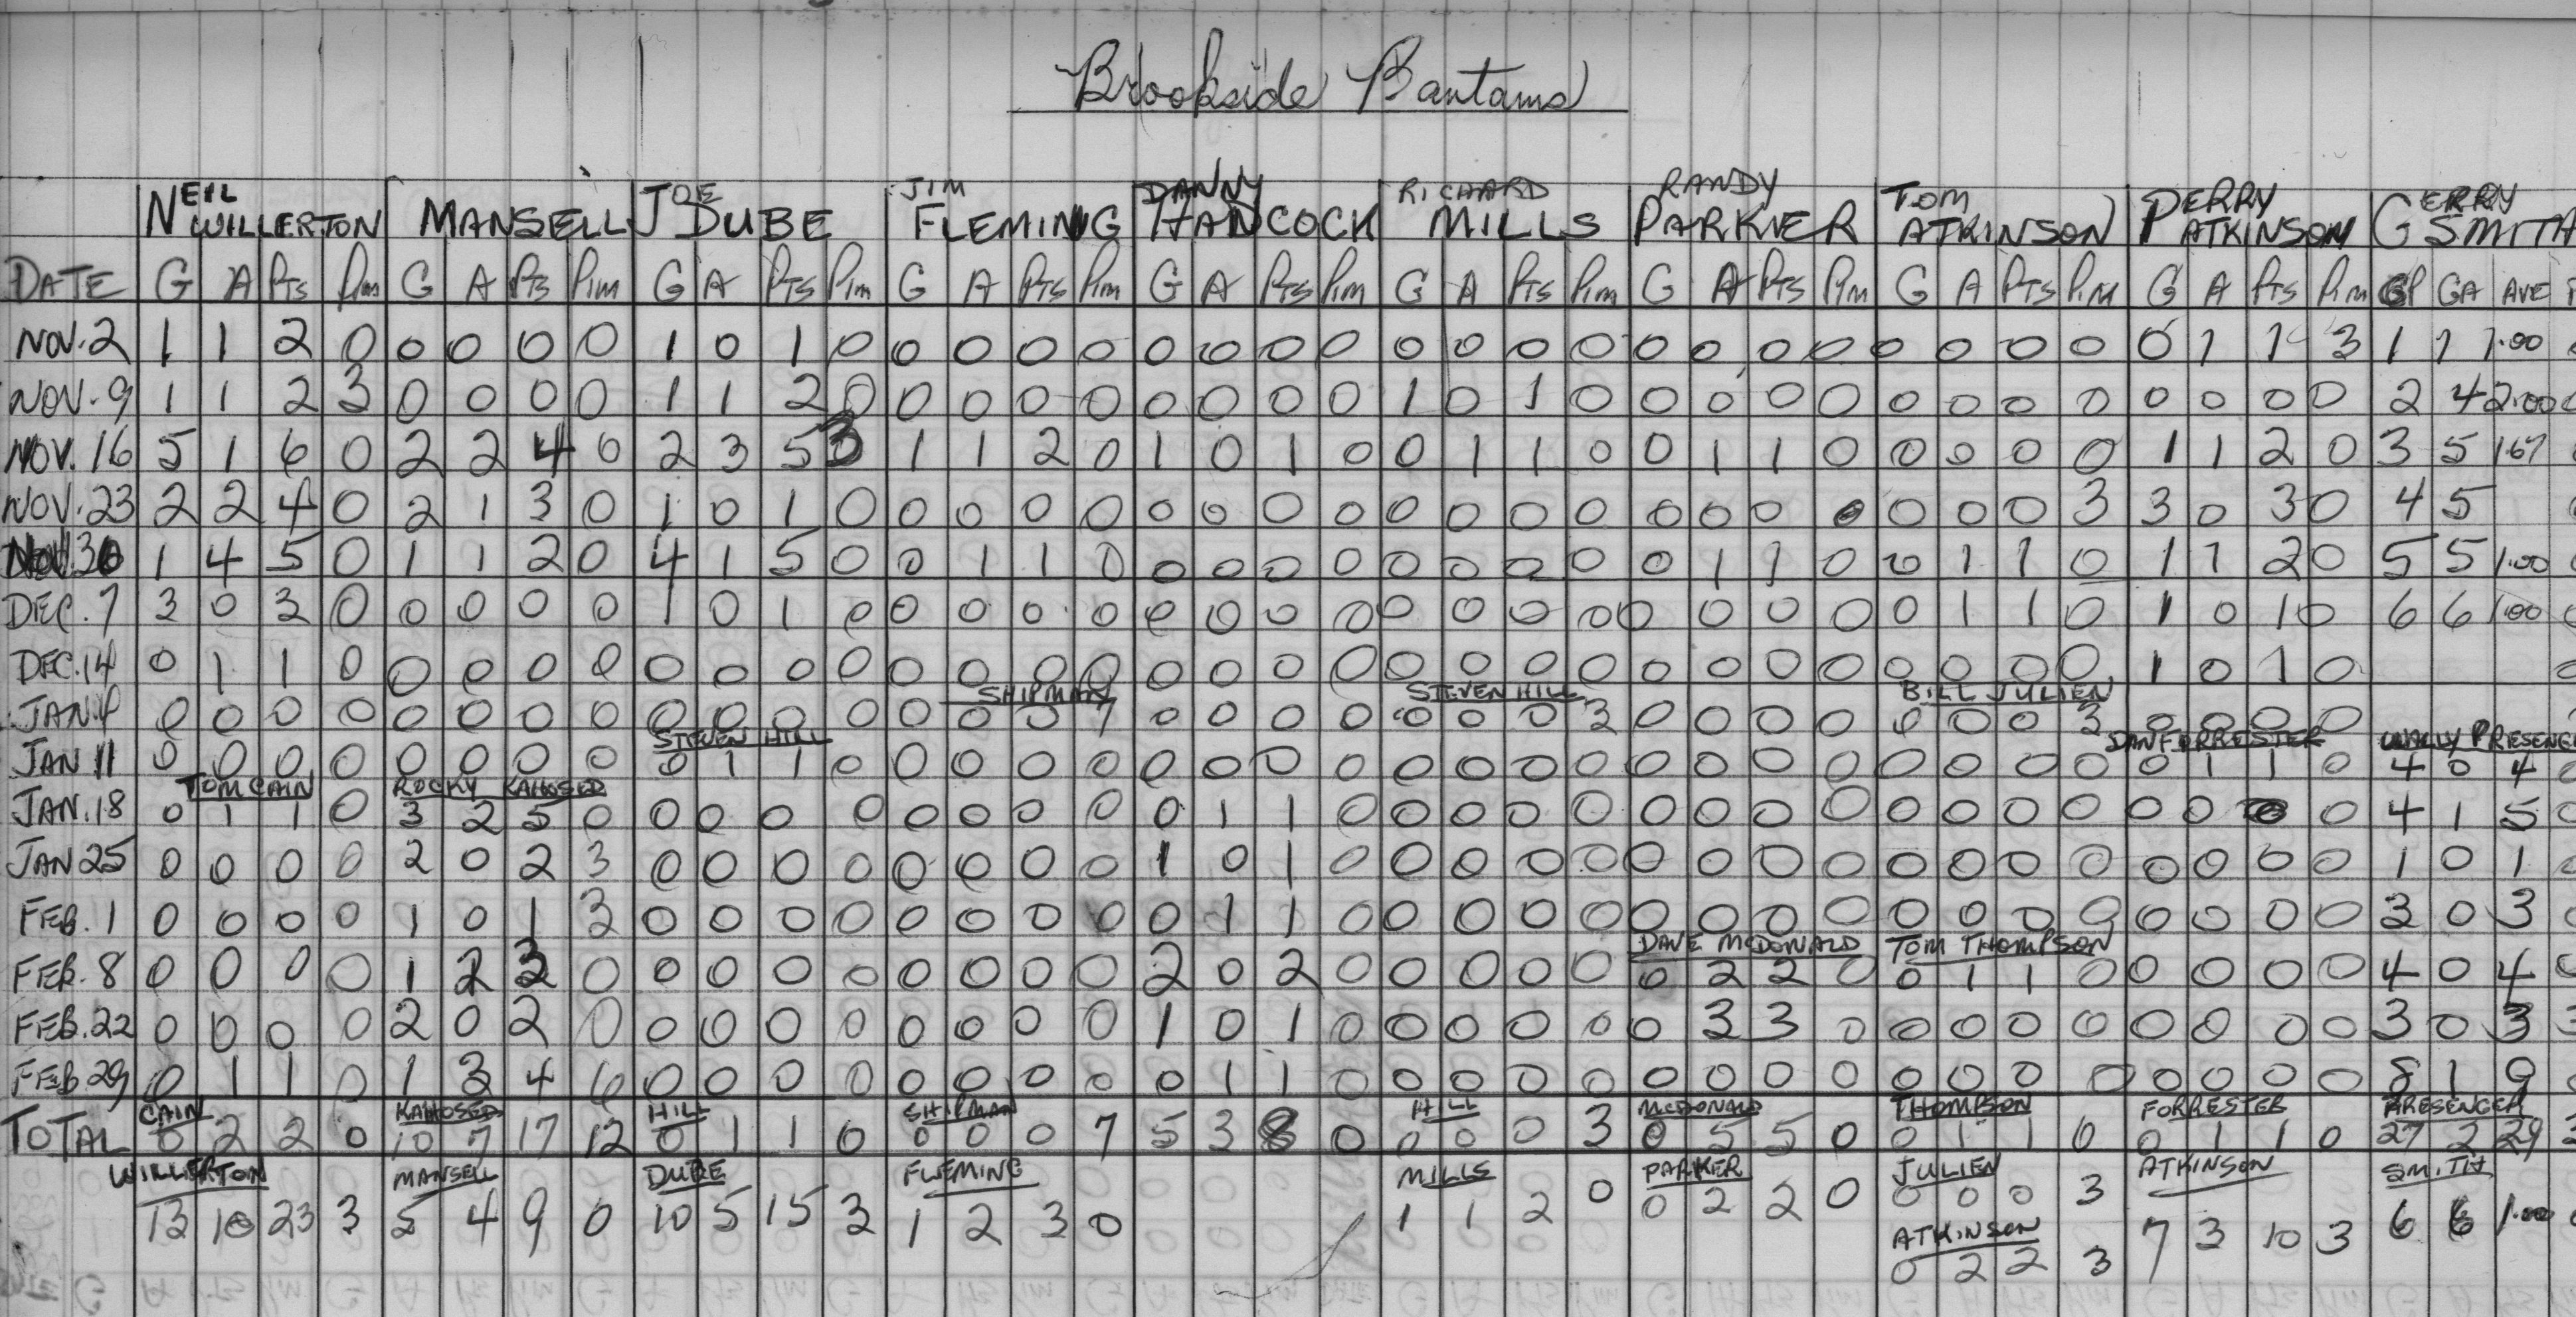 Brookside Bantams
NEIL WILLERTON MANSELL JOE DUBE JIM FLEMING DANNY HANCOCK RICHARD MILLS RANDY PARKER TOM ATKINSON PERRY ATKINSON GERRY SMITH
DATE G A Pts Pim G A Pts Pim G A PTS Pim G A PTS Pim G A PTS Pim G A PTS Pim G A PTS PIM G A PTS P.M G A PTS PIM GP GA AVE
NOV. 2 1 1 2 0 0 0 0 0 1 0 1 0 0 0 0 0 0 0 0 0 0 0 0 0 0 0 0 0 0 0 0 0 0 1 1 3 1 1 1.00
NOV. 9 1 1 2 3 0 0 0 0 1 1 2 0 0 0 0 0 0 0 0 0 1 0 1 0 0 0 0 0 0 0 0 0 0 0 0 0 2 4 2.00
NOV. 16 5 1 6 0 2 2 4 0 2 3 5 3 1 1 2 0 1 0 1 0 0 1 1 0 0 1 1 0 0 0 0 0 1 1 2 0 3 5 1.67
NOV. 23 2 2 4 0 2 1 3 0 1 0 1 0 0 0 0 0 0 0 0 0 0 0 0 0 0 0 0 0 0 0 0 3 3 0 3 0 4 5
NOV. 30 1 4 5 0 1 1 2 0 4 1 5 0 0 1 1 0 0 0 0 0 0 0 0 0 0 1 1 0 0 1 1 0 1 1 2 0 5 5 1.00
DEC. 7 3 0 3 0 0 0 0 0 1 0 1 0 0 0 0 0 0 0 0 0 0 0 0 0 0 0 0 0 0 1 1 0 1 0 1 0 6 6 1.00
DEC. 14 0 1 1 0 0 0 0 0 0 0 0 0 0 0 0 0 0 0 0 0 0 0 0 0 0 0 0 0 0 0 0 0 1 0 1 0
SHIPMAN STEVEN HILL BILL JULIEN
JAN. 4 0 0 0 0 0 0 0 0 0 0 0 0 0 0 0 7 0 0 0 0 0 0 0 3 0 0 0 0 0 0 0 3 0 0 0 0
STEVEN HILL DAN FORRESTER WALLY PRESENGER
JAN 11 0 0 0 0 0 0 0 0 0 1 1 0 0 0 0 0 0 0 0 0 0 0 0 0 0 0 0 0 0 0 0 0 0 1 1 0 4 0 4
TOM CAIN ROCKY KAHOSED
JAN. 18 0 1 1 0 3 2 5 0 0 0 0 0 0 0 0 0 0 1 1 0 0 0 0 0 0 0 0 0 0 0 0 0 0 0 0 0 4 1 5
JAN 25 0 0 0 0 2 0 2 3 0 0 0 0 0 0 0 0 1 0 1 0 0 0 0 0 0 0 0 0 0 0 0 0 0 0 0 0 1 0 1
FEB. 1 0 0 0 0 1 0 1 3 0 0 0 0 0 0 0 0 0 1 1 0 0 0 0 0 0 0 0 0 0 0 0 0 0 0 0 0 3 0 3
DAVE McDONALD TOM THOMPSON
FEB. 8 0 0 0 0 1 2 3 0 0 0 0 0 0 0 0 0 2 0 2 0 0 0 0 0 0 2 2 0 0 1 1 0 0 0 0 0 4 0 4
FEB. 22 0 0 0 0 2 0 2 0 0 0 0 0 0 0 0 0 1 0 1 0 0 0 0 0 0 3 3 0 0 0 0 0 0 0 0 0 3 0 3
FEB. 29 0 1 1 0 1 3 4 6 0 0 0 0 0 0 0 0 0 1 1 0 0 0 0 0 0 0 0 0 0 0 0 0 0 0 0 0 8 1 9
CAIN KAHOSED HILL SHIPMAN HILL McDONALD THOMPSON FORRESTER PRESENGER
TOTAL 0 2 2 0 10 7 17 12 0 1 1 0 0 0 0 7 5 3 8 0 0 0 0 3 0 5 5 0 0 1 1 0 0 1 1 0 27 2 29
WILLERTON MANSELL DUBE FLEMING MILLS PARKER JULIEN ATKINSON SMITH
13 10 23 3 5 4 9 0 10 5 15 3 1 2 3 0 1 1 2 0 0 2 2 0 0 0 0 3 7 3 10 3 6 6 1.00
ATKINSON
0 2 2 3